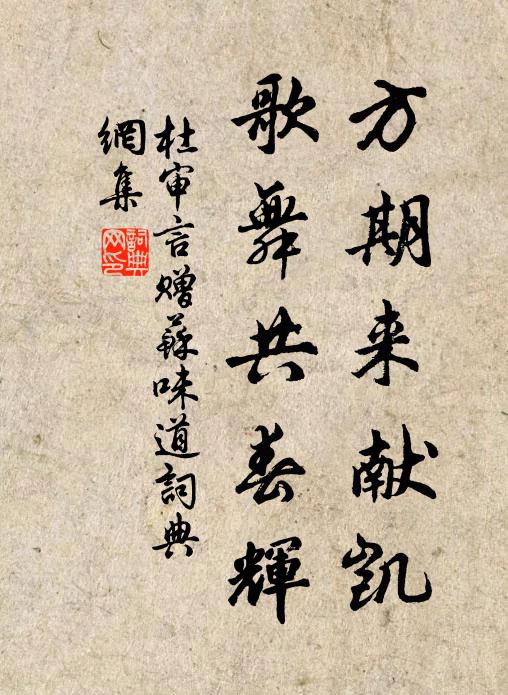 方期来献凯
歌舞共春輝
杜审言赠蘇味道詞典
網集
詞典
网印